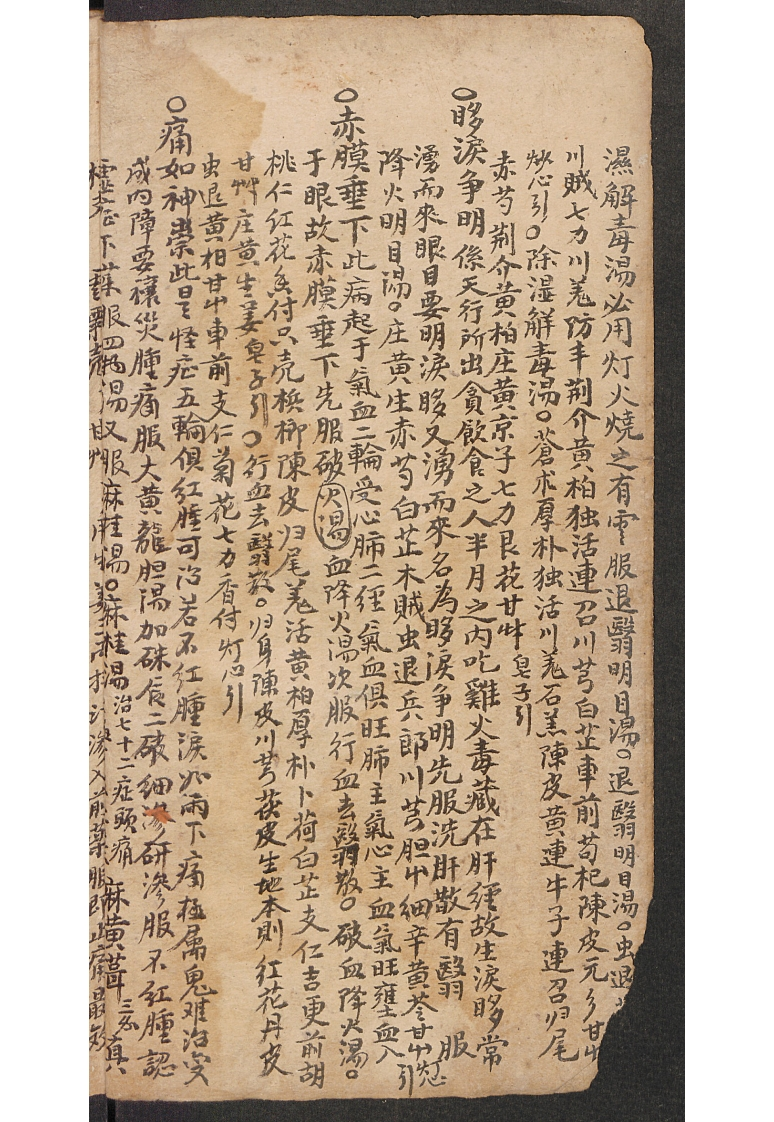 濕解毒湯必用灯火燒之有雲服退翳明目湯○退翳明目湯○虫退
川賊七力川羌防丰荆介黃柏独活連召川芎白芷車前苟杞陳皮元參甘屮
灯心引○除湿解毒湯○蒼朮厚朴独活川羌石羔陳皮黃連牛子連召归尾
赤芍荆介黃柏庄黃京子七力艮花甘屮皂子引
○眵淚争明係天行所出貪飲食之人半月之内吃雞火毒藏在肝經故生淚眵常
湧而來眼目要明淚眵又湧而來名為眵淚争明先服洗肝散有翳服
降火明目湯○庄黃生赤芍白芷木賊虫退兵郎川芎胆屮細辛黃芩甘屮灯心引
○赤膜垂下此病起于氣血二輪受心肺二經氣血俱旺肺主氣心主血氣旺壅血入
于眼故赤膜垂下先服破火湯血降火湯次服行血去翳散○破血降火湯○
桃仁紅花香付只壳梹榔陳皮归尾羌活黃柏厚朴卜荷白芷支仁吉更前胡
甘艸庄黃生姜皂子引○行血去翳散○归身陳皮川芎茯皮生地本則紅花丹皮
虫退黃柏甘屮車前支仁菊花七力香付灯心引
○痛如神祟此是怪症五輪俱紅腫可治若不紅腫淚如雨下痛極属鬼难治变
成内障要禳災腫痛服大黃龍胆湯加硃辰二破細滲研滲服不紅腫認
症下服四物湯又服麻桂湯○麻桂湯治七十二症頭痛麻黃三分真